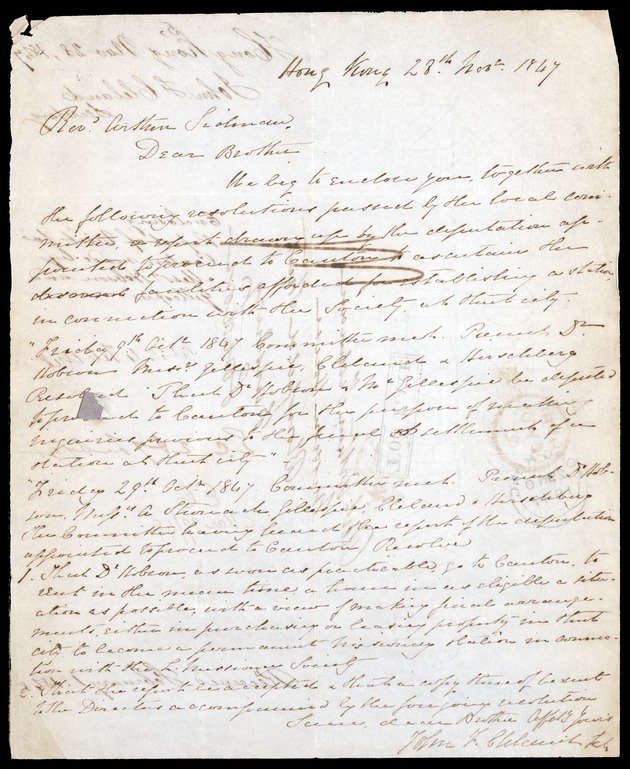 Hong Kong 28th Novr 1847
Revd Arthur Tidman,
Dear Brother
We beg to enclose you, together with
the following resolutions passed by the local com-
mittee, a report drawn up by the deputation ap-
pointed to proceed to Canton to ascertain the
facilities afforded for establishing a station
in connection with the Society, at that city.
"Friday 9th Octr 1847 Committee met. Present Dr
Hobson Messrs Gillespie, Cleland & Hirschberg
Resolved That Dr Hobson & Mr Gillespie be deputed
to proceed to Canton for the purpose of making
inquiries previous to the final settlement of a
station at that city"
"Friday 29th Octr 1847 Committee met. Present Dr Hob-
son, Messrs A Stronach, Gillespie, Cleland & Hirschberg
The Committee having heard the report of the deputation
appointed to proceed to Canton, Resolve
1. That Dr Hobson, as soon as practicable, go to Canton, to
rent in the mean time a house in as eligible a situ-
ation as possible, with a view of making final arrange-
ments either in purchasing or leasing property in that
city to become a permanent missionary station in connec-
tion with the L. Missionary Society
2. That the report be accepted & that a copy thereof be sent
to the Directors accompanied by the foregoing resolution
dear Brother Affectly yours
John F. Cleland